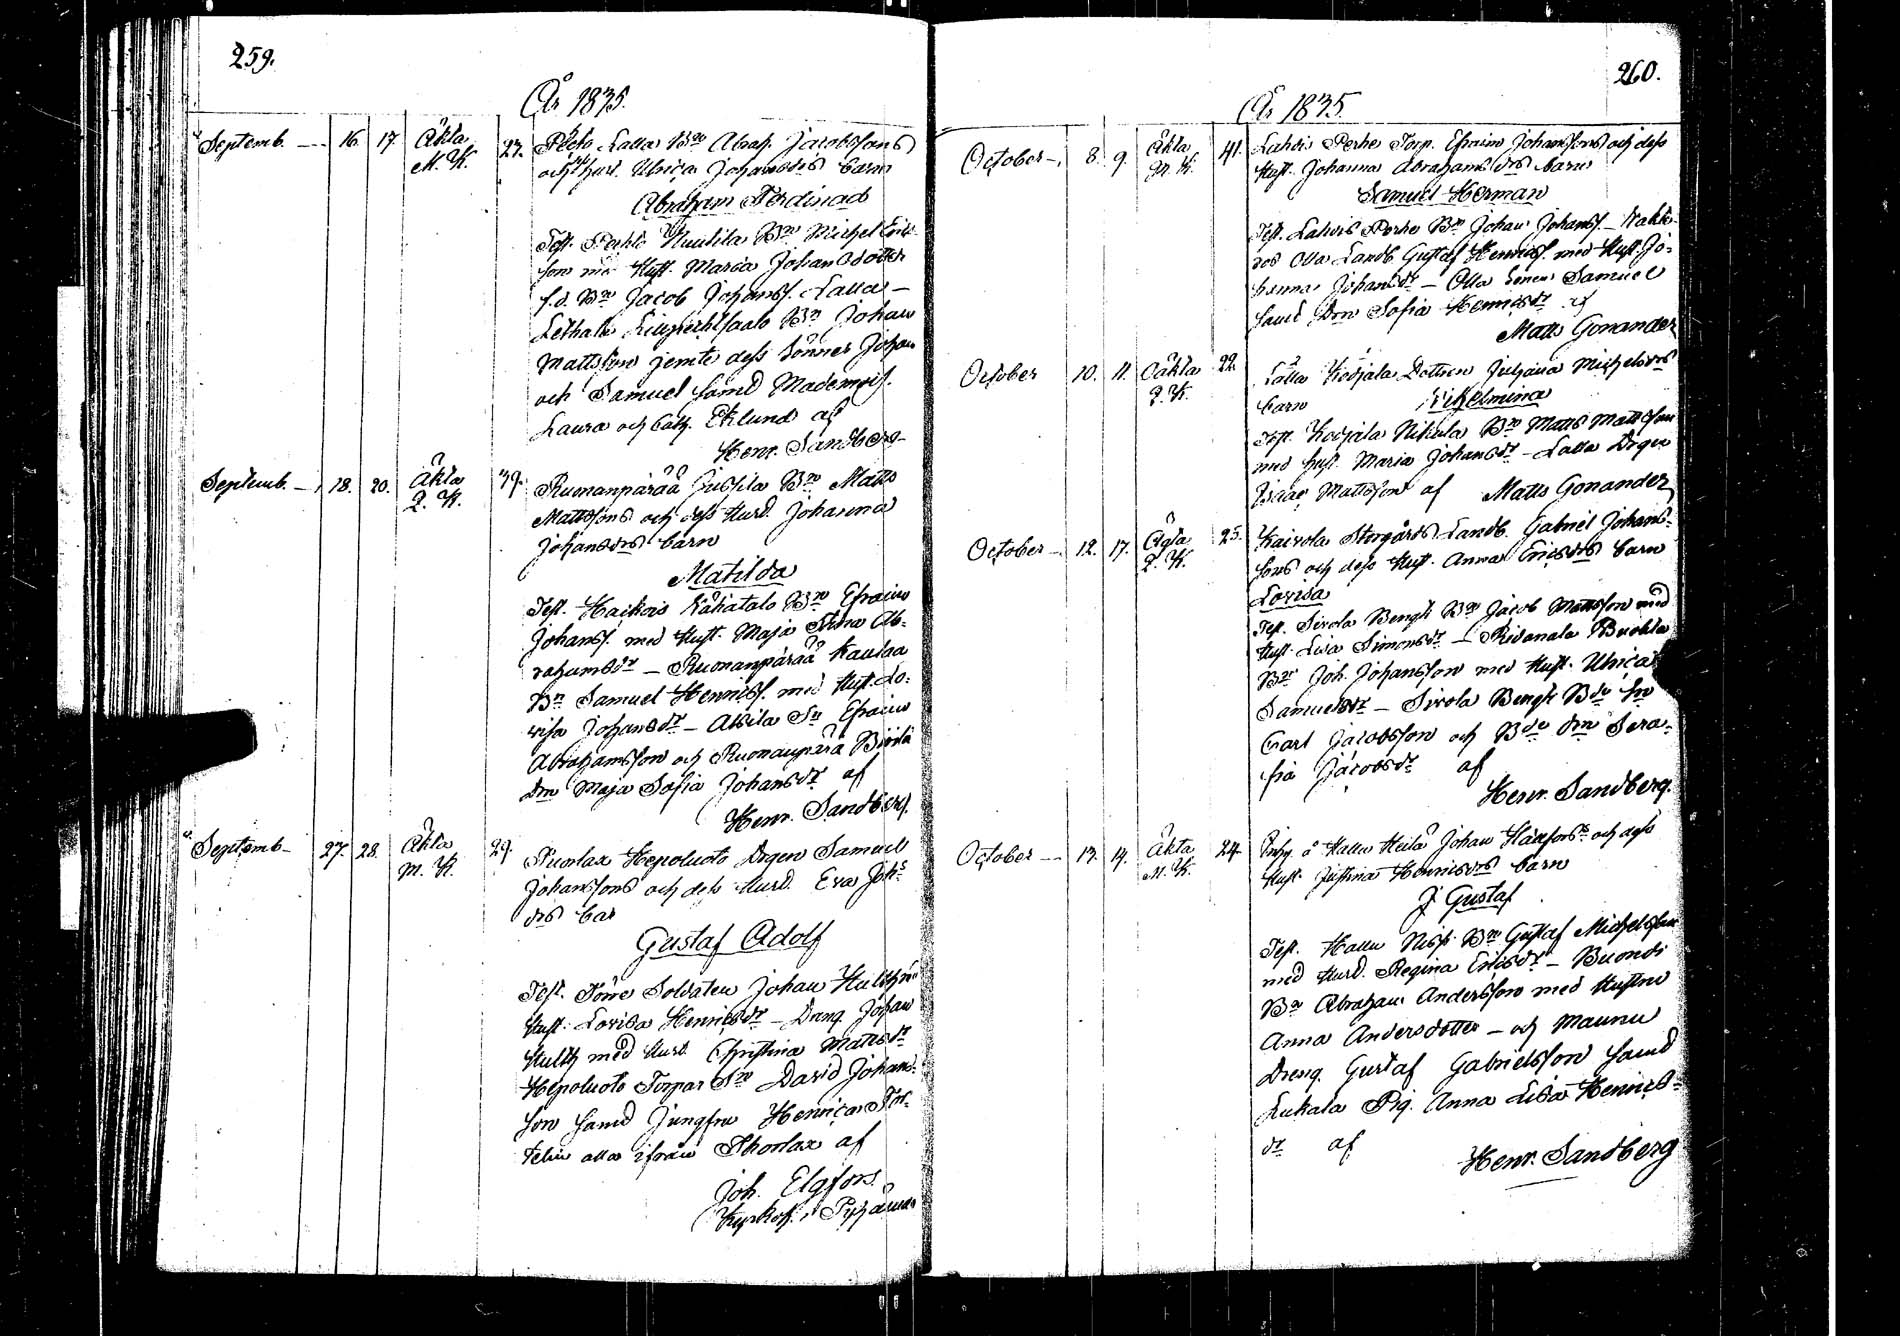 259.
År 1835.
Septemb. — 16. 17. Äkta 27. Lalla Bn Abrah. Jacobssons
M. K. och Hust. Ulrica Johansdrs barn
Abraham Ferdinad
Test. Bn Michel Erics-
son med Hust. Maria Johansdotter
f.d. Bn Jacob Johanss. Lalla —
Bn Johan
Mattsson jemte dess Sönner Johan
och Samuel samt Mademois.
Laura och Cath. Eklund af
Henr. Sandberg
Septemb. — 18. 20. Äkta 39. Ruonanpärää Jussila Bn Matts
Q. K. Mattssons och dess Hust. Johanna
Johansdrs barn
Matilda
Test. Haikois Bn Efraim
Johanss. med Hust. Maja Stina Ab-
rahamsdr — Ruonanpärää Kaukaa
Bn Samuel Henrics. med Hust. Lo-
visa Johansdr — Attila Sn Efraim
Abrahamsson och Ruonanpärä
Drn Maja Sofia Johansdr af
Henr. Sandberg.
Septemb — 27. 28. Äkta 29. Hepoluoto Drgen Samuel
M. K. Johanssons och dess Hust. Eva Johs
drs bar
Gustaf Adolf
Test. Soldaten Johan
Hust. Lovisa Henricsdr — Dreng Johan
Hultz med Hust. Christina Mattsdr
Hepoluoto Torpar Sn David Johans-
son samt Jungfru Henrica
alla ifrån af
Joh. Elgfors.
260.
År 1835.
October — 8. 9. Äkta 41. Lahdis Perhe Torp. Efraim Johanssons och dess
M. K. Hust. Johanna Abrahamsdrs barn
Samuel Herman
Test. Lahdis Perhe Bn Johan Johanss. —
Olla Landb. Gustaf Henricss. med Hust. Jo-
hanna Johansdr — Olla Samuel
samt Drn Sofia Henricsdr af
Matts Gonander
October 10. 11. Oäkta 22. Lalla Kodjala Dottren Juliana Michelsdrs
Q. K. barn Vilhelmina
Test. Kodjala Nikula Bn Matts Mattsson
med hust. Maria Johansdr — Lalla Drgen
Isaac Mattsson af Matts Gonander
October — 12. 17. Ägta 25. Kairola Storgårds Landb. Gabriel Johans-
Q. K. sons och dess Hust. Anna Ericsdrs barn
Lovisa
Test. Sirola Bengt Bn Jacob Mattsson med
Hust. Lisa Simonsdr —
Bn Joh. Johansson med Hust. Ulrica
Samuelsdr — Sirola Bengt Bde Sn
Carl Jacobsson och Bde drn Sera-
fia Jacobsdr af
Henr. Sandberg.
October — 13. 14. Äkta 24. Inhy. å Kallu Heilä Johan och dess
M. K. Hust. Justina Henricsdrs barn
J Gustaf
Test. Kallu Bn Gustaf Michelsson
med Hust. Regina Ericsdr —
Bn Abraham Andersson med Hustru
Anna Andersdotter — och Maunu
Dreng. Gustaf Gabrielsson samt
Lukala Pig. Anna Lisa Henrics-
dr af
Henr. Sandberg